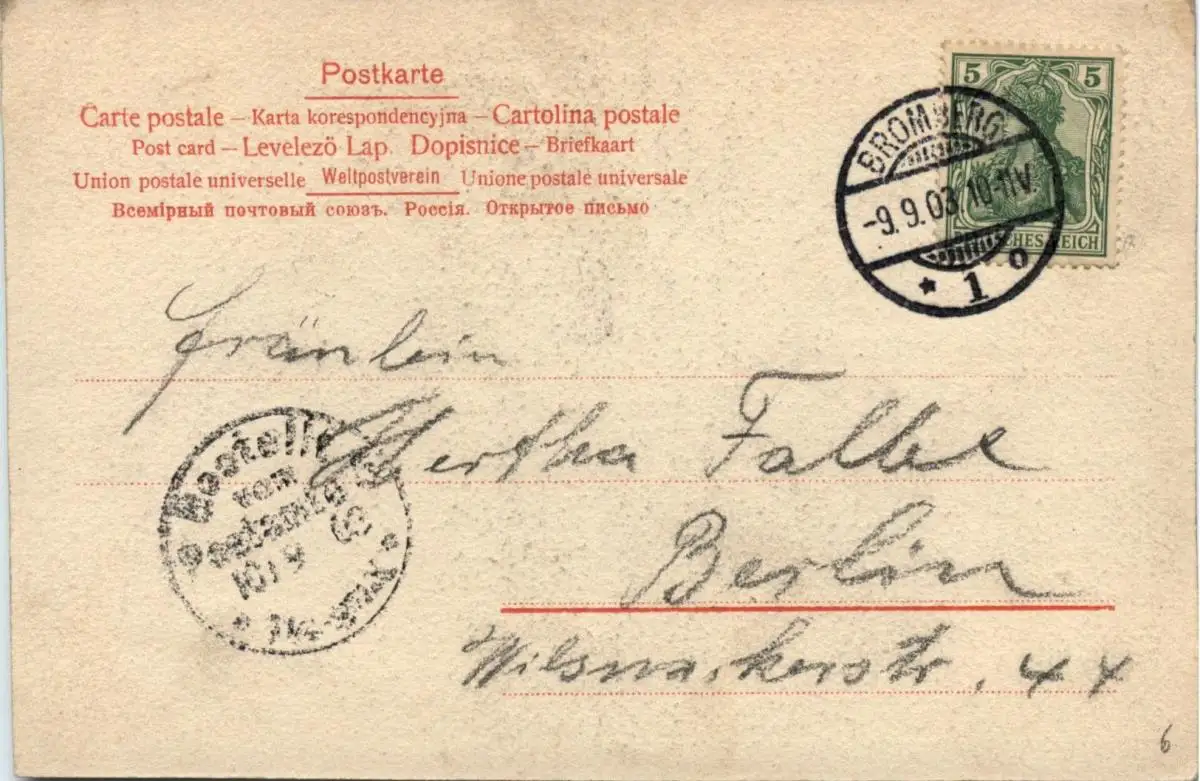 Postkarte
Carte postale – Karta korespondencyjna – Cartolina postale
Post card – Levelezö Lap. Dopisnice – Briefkaart
Union postale universelle Weltpostverein Unione postale universale
Всемірный почтовый союзъ. Россія. Открытое письмо
5 5
DEUTSCHES REICH
BROMBERG
-9.9.03.10-11V.
* 1 o
Fräulein
Hertha Falbe
Berlin
Wilsnackerstr. 44
Bestellt
vom
Postamte
10/9
6